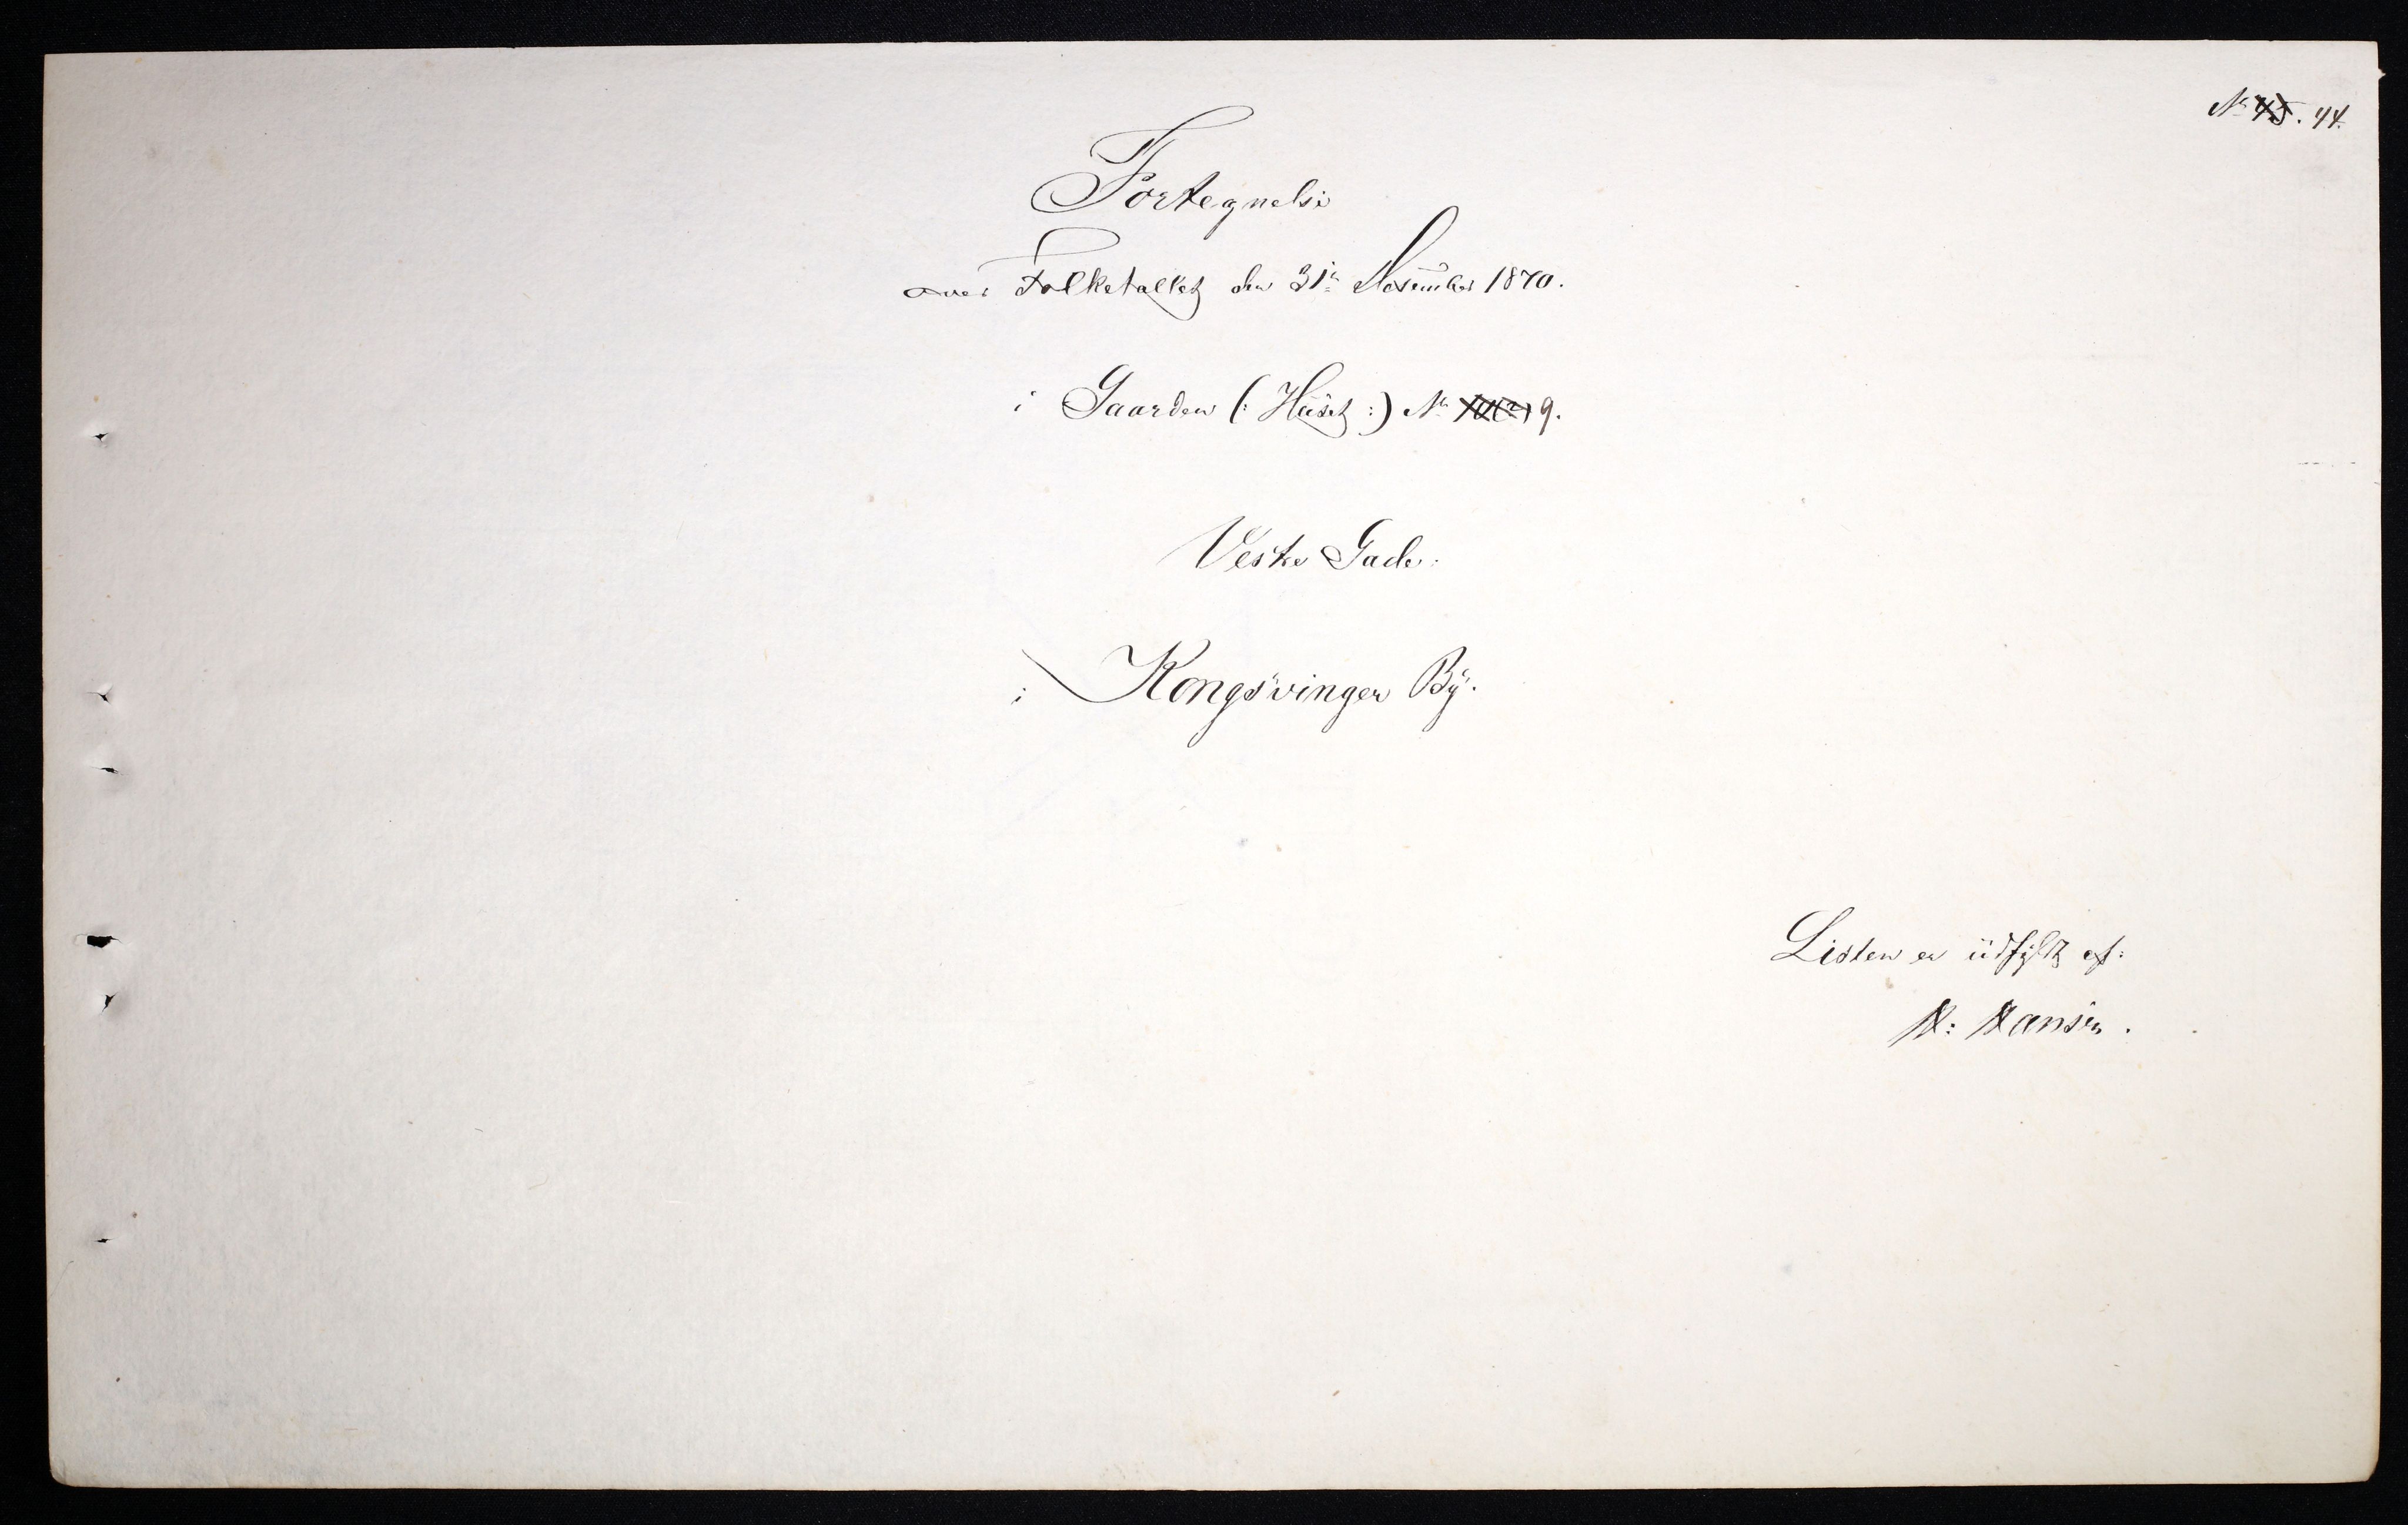 No 45. 44.
Fortegnelse
over Folketallet den 31te December 1870.
i Gaarden (: Huset :) No 9.
Vestre Gade.
i Kongsvinger By.
Listen er udfyldt af:
H: Hansen.